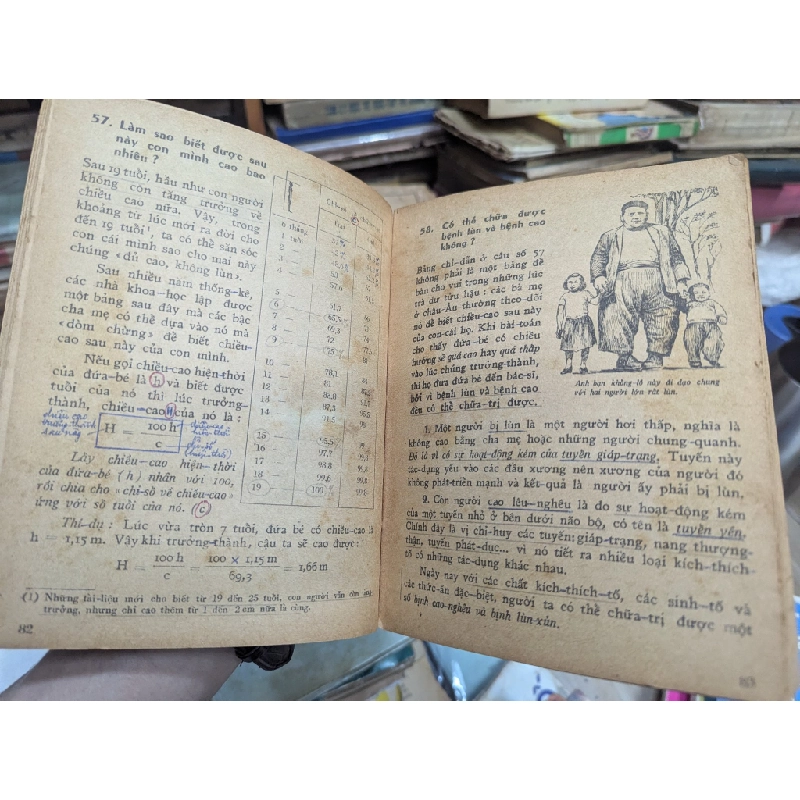 57. Làm sao biết được sau
này con mình cao bao
nhiêu ?
Sau 19 tuổi, hầu như con người
không còn tăng trưởng về
chiều cao nữa. Vậy, trong
khoảng từ lúc mới ra đời cho
đến 19 tuổi¹, ta có thể săn sóc
con cái mình sao cho mai này
chúng «đủ cao, không lùn».
Sau nhiều năm thống-kê,
các nhà khoa-học lập được
một bảng sau đây mà các bậc
cha mẹ có thể dựa vào nó mà
«dòm chừng» để biết chiều-
cao sau này của con mình.
Nếu gọi chiều-cao hiện-thời
của đứa-bé là h và biết được
tuổi của nó thì lúc trưởng-
thành, chiều-cao H của nó là :
chiều cao
trưởng thành
sau này
H = 100 h / c
Lấy chiều-cao hiện-thời
của đứa-bé (h) nhân với 100,
rồi chia cho «chỉ-số về chiều-cao»
ứng với số tuổi của nó. (c)
Thí-dụ : Lúc vừa tròn 7 tuổi, đứa bé có chiều-cao
h = 1,15 m. Vậy khi trưởng-thành, cậu ta sẽ cao được :
H = 100 h / c = 100 × 1,15 m / 69,3 = 1,66 m
(1) Những tài-liệu mới cho biết từ 19 đến 25 tuổi, con người vẫn còn
trưởng, nhưng chỉ cao thêm từ 1 đến 2 cm nữa là cùng.
82
6 tháng
5
6
7
8
9
10
11
12
13
14
15
16
17
18
19
58. Có thể chữa được
bệnh lùn và bệnh cao
không ?
Bảng chỉ-dẫn ở câu số 57
không phải là một bảng để
bàn cho vui trong những lúc
trà dư tửu hậu : các bà mẹ
ở châu-Âu thường theo-dõi
nó để biết chiều-cao sau này
của con-cái họ. Khi bài-toán
cho thấy đứa-bé có chiều
hướng sẽ quá cao hay quá thấp
vào lúc chúng trưởng-thành,
thì họ đưa đứa bé đến bác-sĩ,
bởi vì bệnh lùn và bệnh cao
đều có thể chữa-trị được.
Anh bạn khổng-lồ này đi dạo chung
với hai người lớn rất lùn.
1. Một người bị lùn là một người hơi thấp, nghĩa là
không cao bằng cha mẹ hoặc những người chung-quanh.
Đó là vì có sự hoạt-động kém của tuyến giáp-trạng. Tuyến này
tác-dụng yếu vào các đầu xương nên xương của người đó
không phát-triển mạnh và kết-quả là người ấy phải bị lùn.
2. Còn người cao lêu-nghêu là do sự hoạt-động kém
của một tuyến nhỏ ở bên dưới não bộ, có tên là tuyến yên.
Chính đây là vị chỉ-huy các tuyến: giáp-trạng, nang thượng-
thận, tuyến phát-dục... vì nó tiết ra nhiều loại kích-thích-
tố có những tác-dụng khác nhau.
Ngày nay với các chất kích-thích-tố, các sinh-tố và
các thức-ăn đặc-biệt, người ta có thể chữa-trị được một
số bệnh cao-nghệu và bệnh lùn-xủn.
83